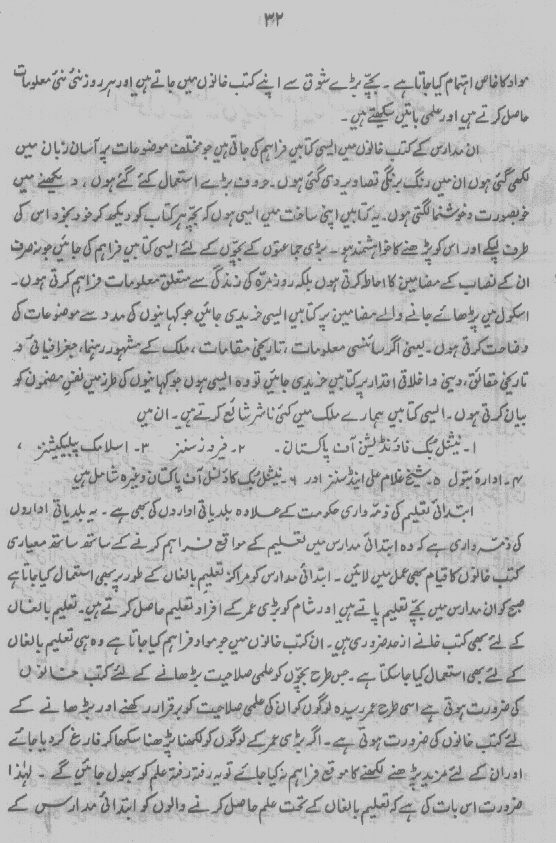 ۳۲
مواد کا خاص اہتمام کیا جاتا ہے۔ بچے بڑے شوق سے اپنے کتب خانوں میں جاتے ہیں اور ہر روز نئی نئی معلومات
حاصل کرتے ہیں اور علمی باتیں سیکھتے ہیں۔
ان مدارس کے کتب خانوں میں ایسی کتابیں فراہم کی جاتی ہیں جو مختلف موضوعات پر آسان زبان میں
لکھی گئی ہوں ان میں رنگ برنگی تصاویر دی گئی ہوں۔ حروف بڑے استعمال کئے گئے ہوں، دیکھنے میں
خوبصورت و خوشنما لگتی ہوں۔ یہ کتابیں اپنی ساخت میں ایسی ہوں کہ بچہ ہر کتاب کو دیکھ کر خود بخود اس کی
طرف لپکے اور اس کو پڑھنے کا خواہشمند ہو۔ بڑی جماعتوں کے بچوں کے لئے ایسی کتابیں فراہم کی جائیں جو نہ صرف
ان کے نصاب کے مضامین کا احاطہ کرتی ہوں بلکہ روزمرّہ کی زندگی سے متعلق معلومات فراہم کرتی ہوں۔
اسکول میں پڑھائے جانے والے مضامین پر کتابیں ایسی خریدی جائیں جو کہانیوں کی مدد سے موضوعات کی
وضاحت کرتی ہوں۔ یعنی اگر سائنسی معلومات، تاریخی مقامات، ملک کے مشہور رہنما، جغرافیائی و
تاریخی حقائق، دینی و اخلاقی اقدار پر کتابیں خریدی جائیں تو وہ ایسی ہوں جو کہانیوں کی طرز میں نفسِ مضمون کو
بیان کرتی ہوں۔ ایسی کتابیں ہمارے ملک میں کئی ناشر شائع کرتے ہیں۔ ان میں
۱۔ نیشنل بُک فاؤنڈیشن آف پاکستان۔ ۲۔ فیروز سنز ۳۔ اسلامک پبلیکیشنز،
۴۔ ادارہ بتول ۵۔ شیخ غلام علی اینڈ سنز اور ۶۔ نیشنل بُک کاؤنسل آف پاکستان وغیرہ شامل ہیں
ابتدائی تعلیم کی ذمّہ داری حکومت کے علاوہ بلدیاتی اداروں کی بھی ہے۔ یہ بلدیاتی اداروں
کی ذمّہ داری ہے کہ وہ ابتدائی مدارس میں تعلیم کے مواقع فراہم کرنے کے ساتھ ساتھ معیاری
کتب خانوں کا قیام بھی عمل میں لائیں۔ ابتدائی مدارس کو مراکز تعلیم بالغاں کے طور پر بھی استعمال کیا جاتا ہے
صبح کو ان مدارس میں بچے تعلیم پاتے ہیں اور شام کو بڑی عمر کے افراد تعلیم حاصل کرتے ہیں۔ تعلیم بالغاں
کے لئے بھی کتب خانے از حد ضروری ہیں۔ ان کتب خانوں میں جو مواد فراہم کیا جاتا ہے وہ ہی تعلیم بالغاں
کے لئے بھی استعمال کیا جا سکتا ہے۔ جس طرح بچوں کو علمی صلاحیت بڑھانے کے لئے کتب خانوں
کی ضرورت ہوتی ہے اسی طرح عمر رسیدہ لوگوں کو ان کی علمی صلاحیت کو برقرار رکھنے اور بڑھانے کے
لئے کتب خانوں کی ضرورت ہوتی ہے۔ اگر بڑی عمر کے لوگوں کو لکھنا پڑھنا سکھا کر فارغ کر دیا جائے
اور ان کے لئے مزید پڑھنے لکھنے کا موقع فراہم نہ کیا جائے تو یہ رفتہ رفتہ علم کو بھول جائیں گے۔ لہٰذا
ضرورت اس بات کی ہے کہ تعلیم بالغاں کے تحت علم حاصل کرنے والوں کو ابتدائی مدارس کے